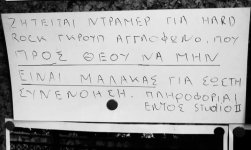 ΖΗΤΕΙΤΑΙ ΝΤΡΑΜΕΡ ΓΙΑ HARD
ROCK ΓΚΡΟΥΠ ΑΓΓΛΟΦΩΝΟ. ΠΟΥ
ΠΡΟΣ ΘΕΟΥ ΝΑ ΜΗΝ
ΕΙΝΑΙ ΜΑΛΑΚΑΣ ΓΙΑ ΣΩΣΤΗ
ΣΥΝΕΝΟΗΣΗ. ΠΛΗΡΟΦΟΡΙΑΙ
ΕΝΤΟΣ STUDIO II